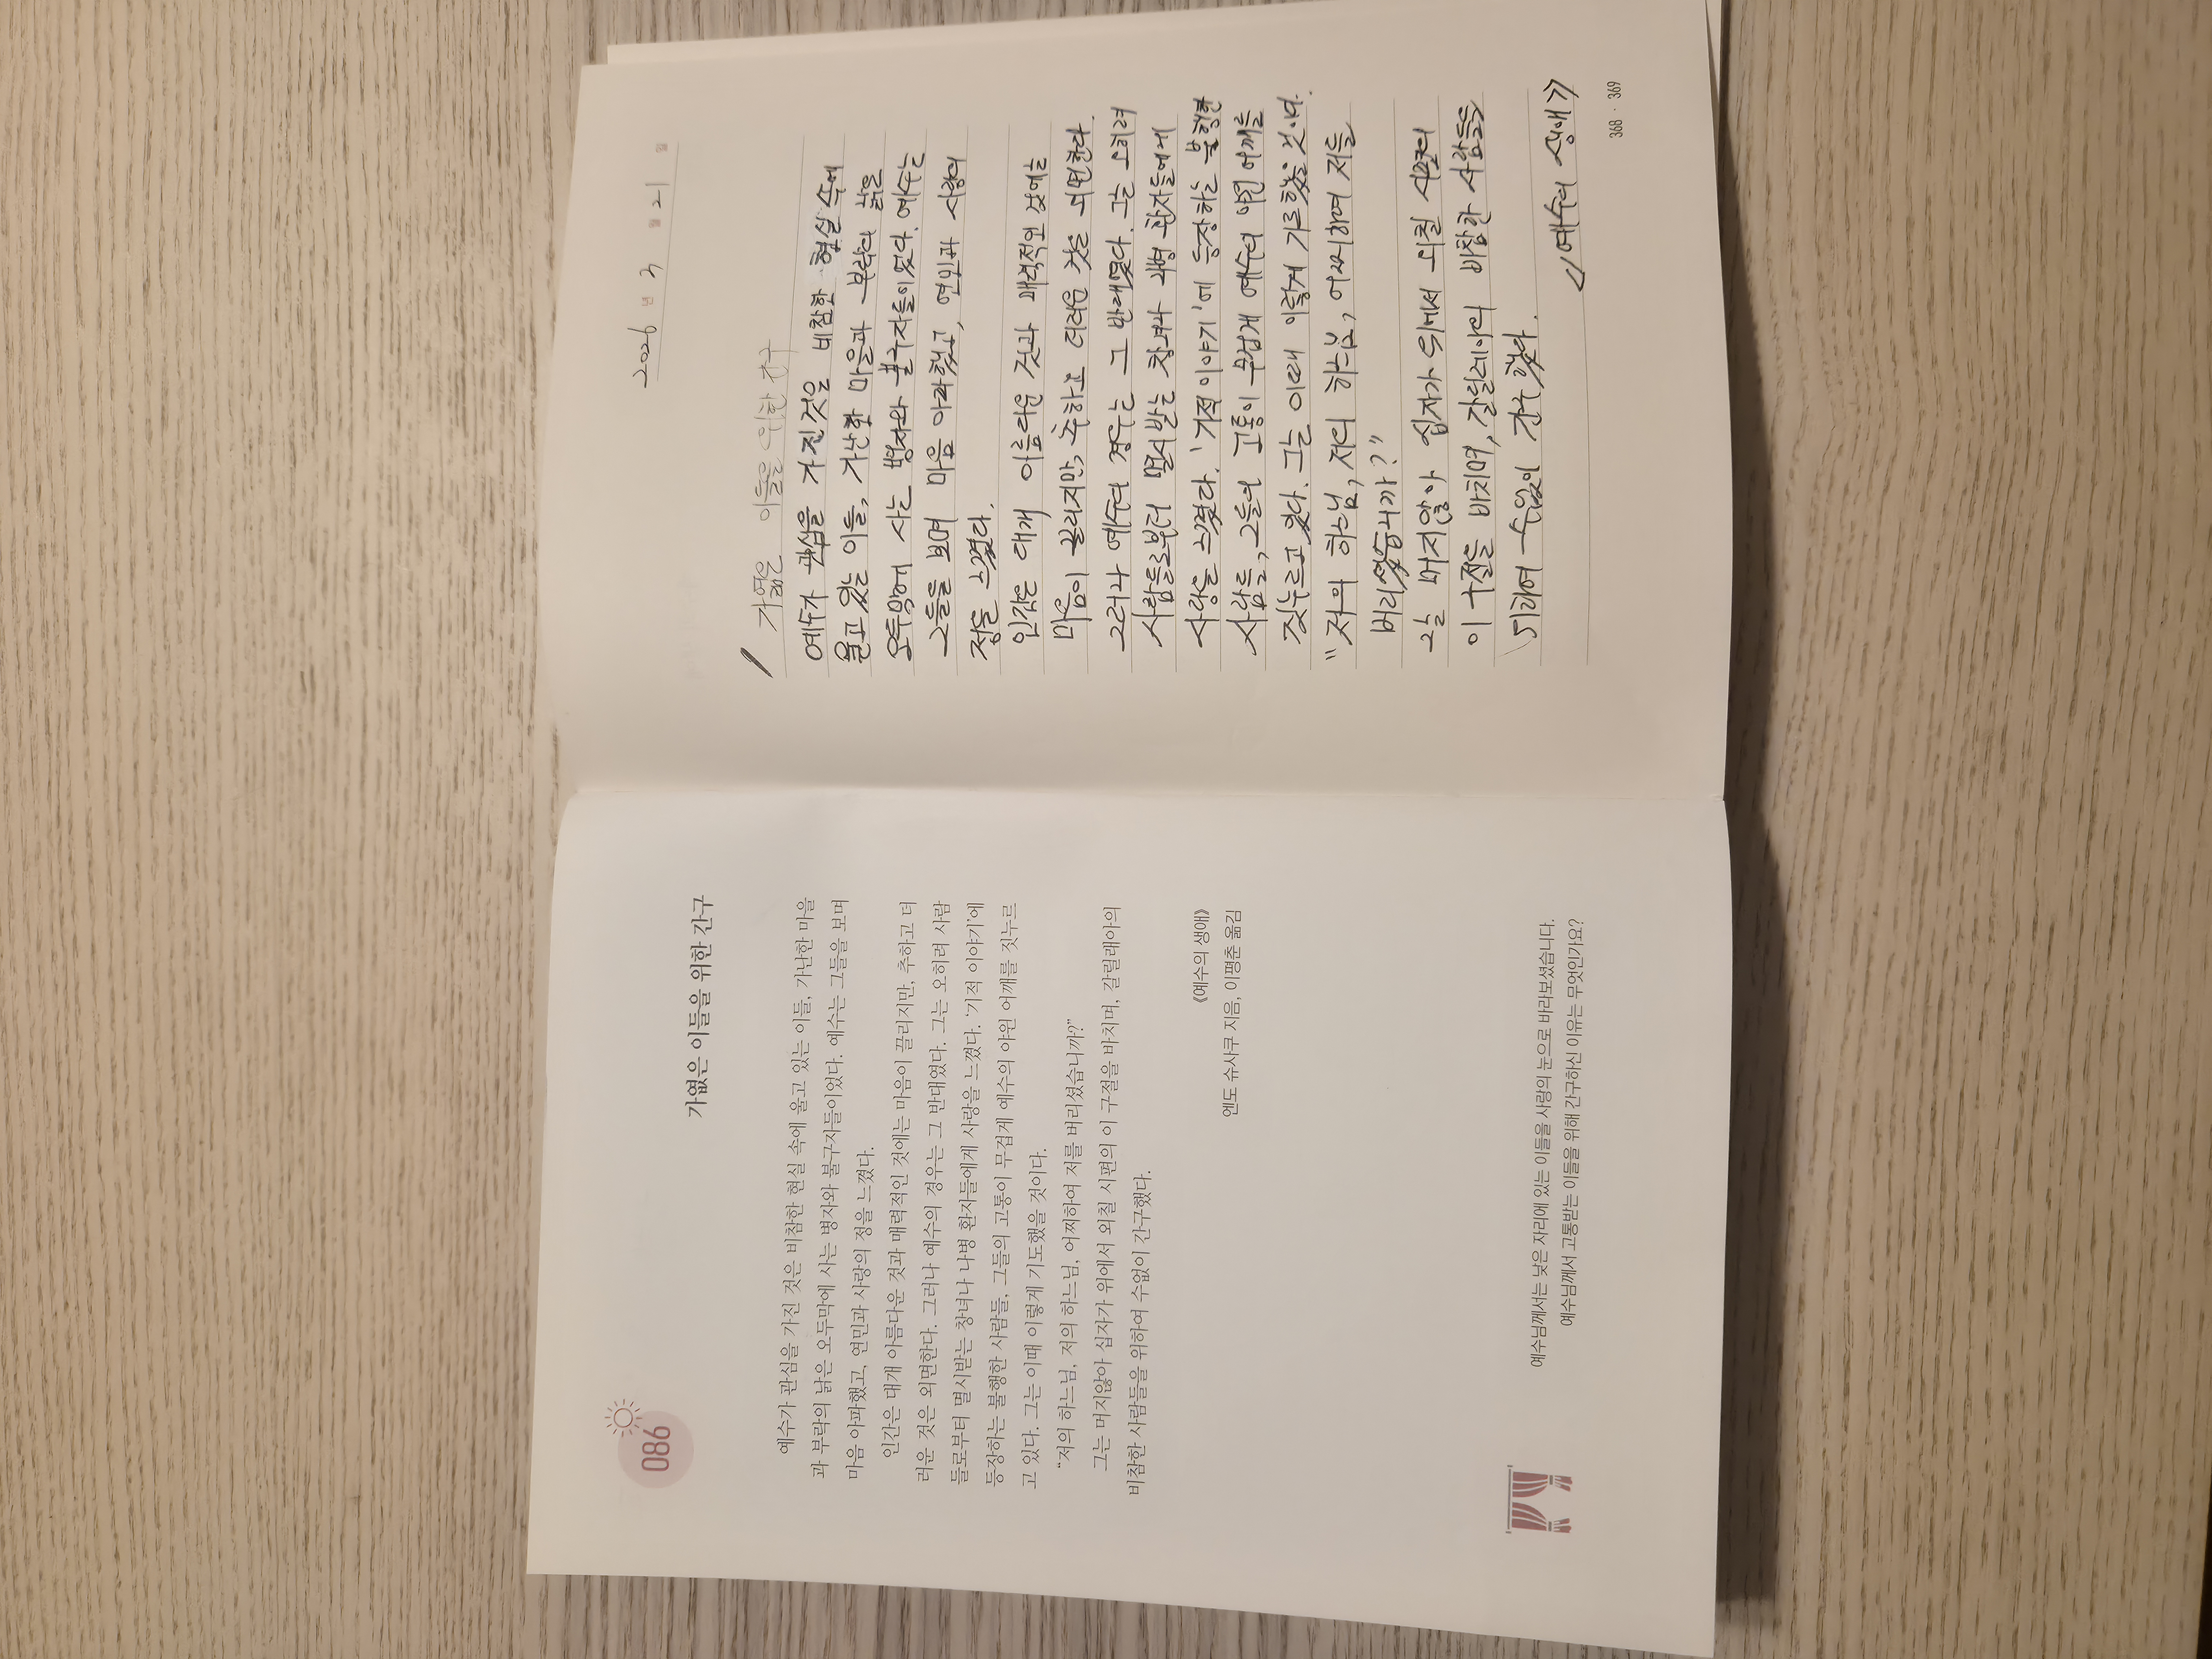 086
가엾은 이들을 위한 간구
예수가 관심을 가진 것은 비참한 현실 속에 울고 있는 이들, 가난한 마을
과 부락의 낡은 오두막에 사는 병자와 불구자들이었다. 예수는 그들을 보며
마음 아파했고, 연민과 사랑의 정을 느꼈다.
인간은 대개 아름다운 것과 매력적인 것에는 마음이 끌리지만, 추하고 더
러운 것은 외면한다. 그러나 예수의 경우는 그 반대였다. 그는 오히려 사람
들로부터 멸시받는 창녀나 나병 환자들에게 사랑을 느꼈다. ‘기적 이야기’에
등장하는 불행한 사람들, 그들의 고통이 무겁게 예수의 야윈 어깨를 짓누르
고 있다. 그는 이때 이렇게 기도했을 것이다.
“저의 하느님, 저의 하느님, 어찌하여 저를 버리셨습니까?”
그는 머지않아 십자가 위에서 외칠 시편의 이 구절을 바치며, 갈릴래아의
비참한 사람들을 위하여 수없이 간구했다.
《예수의 생애》
엔도 슈사쿠 지음, 이평춘 옮김
예수님께서는 낮은 자리에 있는 이들을 사랑의 눈으로 바라보셨습니다.
예수님께서 고통받는 이들을 위해 간구하신 이유는 무엇인가요?
2026 년 3 월 21 일
가엾은 이들을 위한 간구
예수가 관심을 가진 것은 비참한 현실 속에
울고 있는 이들, 가난한 마을과 부락의 낡은
오두막에 사는 병자와 불구자들이었다. 예수는
그들을 보며 마음 아파했고, 연민과 사랑의
정을 느꼈다.
인간은 대개 아름다운 것과 매력적인 것에는
마음이 끌리지만, 추하고 더러운 것은 외면한다.
그러나 예수의 경우는 그 반대였다. 그는 오히려
사람들로부터 멸시받는 창녀나 나병 환자들에게
사랑을 느꼈다. '기적 이야기'에 등장하는 불행한
사람들, 그들의 고통이 무겁게 예수의 야윈 어깨를
짓누르고 있다. 그는 이때 이렇게 기도했을
"저의 하느님, 저의 하느님, 어찌하여 저를
버리셨습니까?"
그는 머지않아 십자가 위에서 외칠 시편의
이 구절을 바치며, 갈릴래아의 비참한 사람들을
위하여 수없이 간구했다.
《예수의 생애》
368 · 369